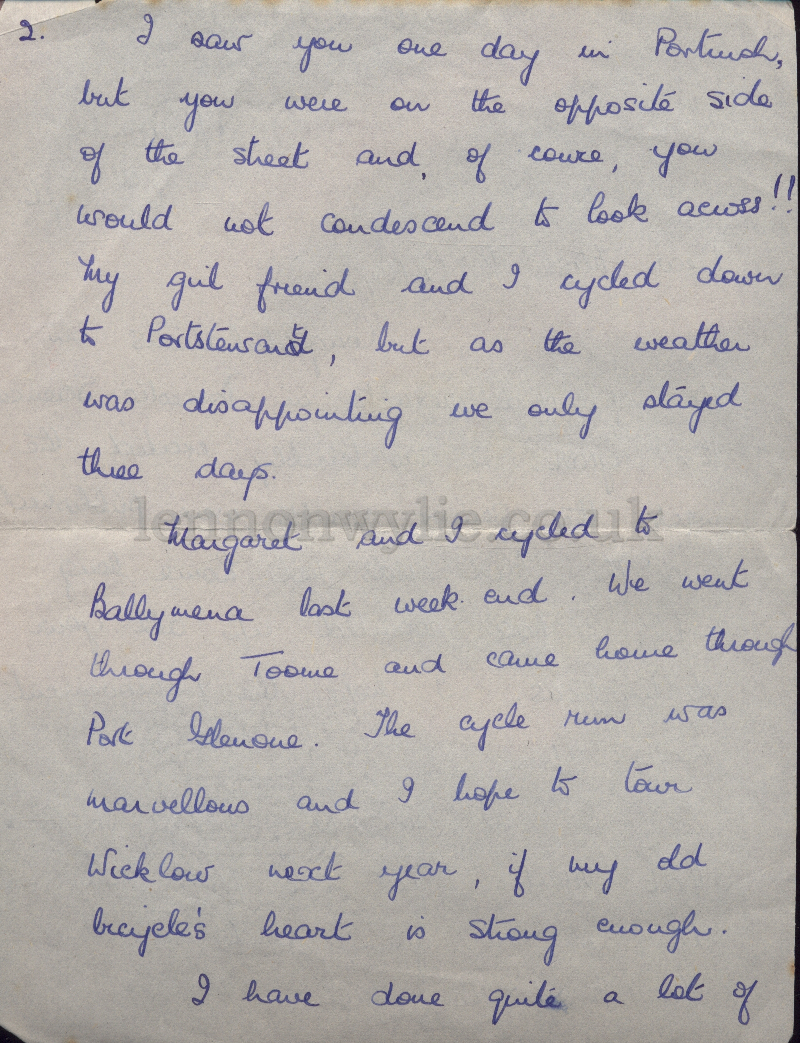 2. I saw you one day in Portrush,
but you were on the opposite side
of the street and, of course, you
would not condescend to look across!!
My girl friend and I cycled down
to Portstewart, but as the weather
was disappointing we only stayed
three days.
lennonwylie.co.uk
Margaret and I cycled to
Ballymena last week end. We went
through Toome and came home through
Port Glenone. The cycle run was
marvellous and I hope to tour
Wicklow next year, if my old
bicycle's heart is strong enough.
I have done quite a lot of